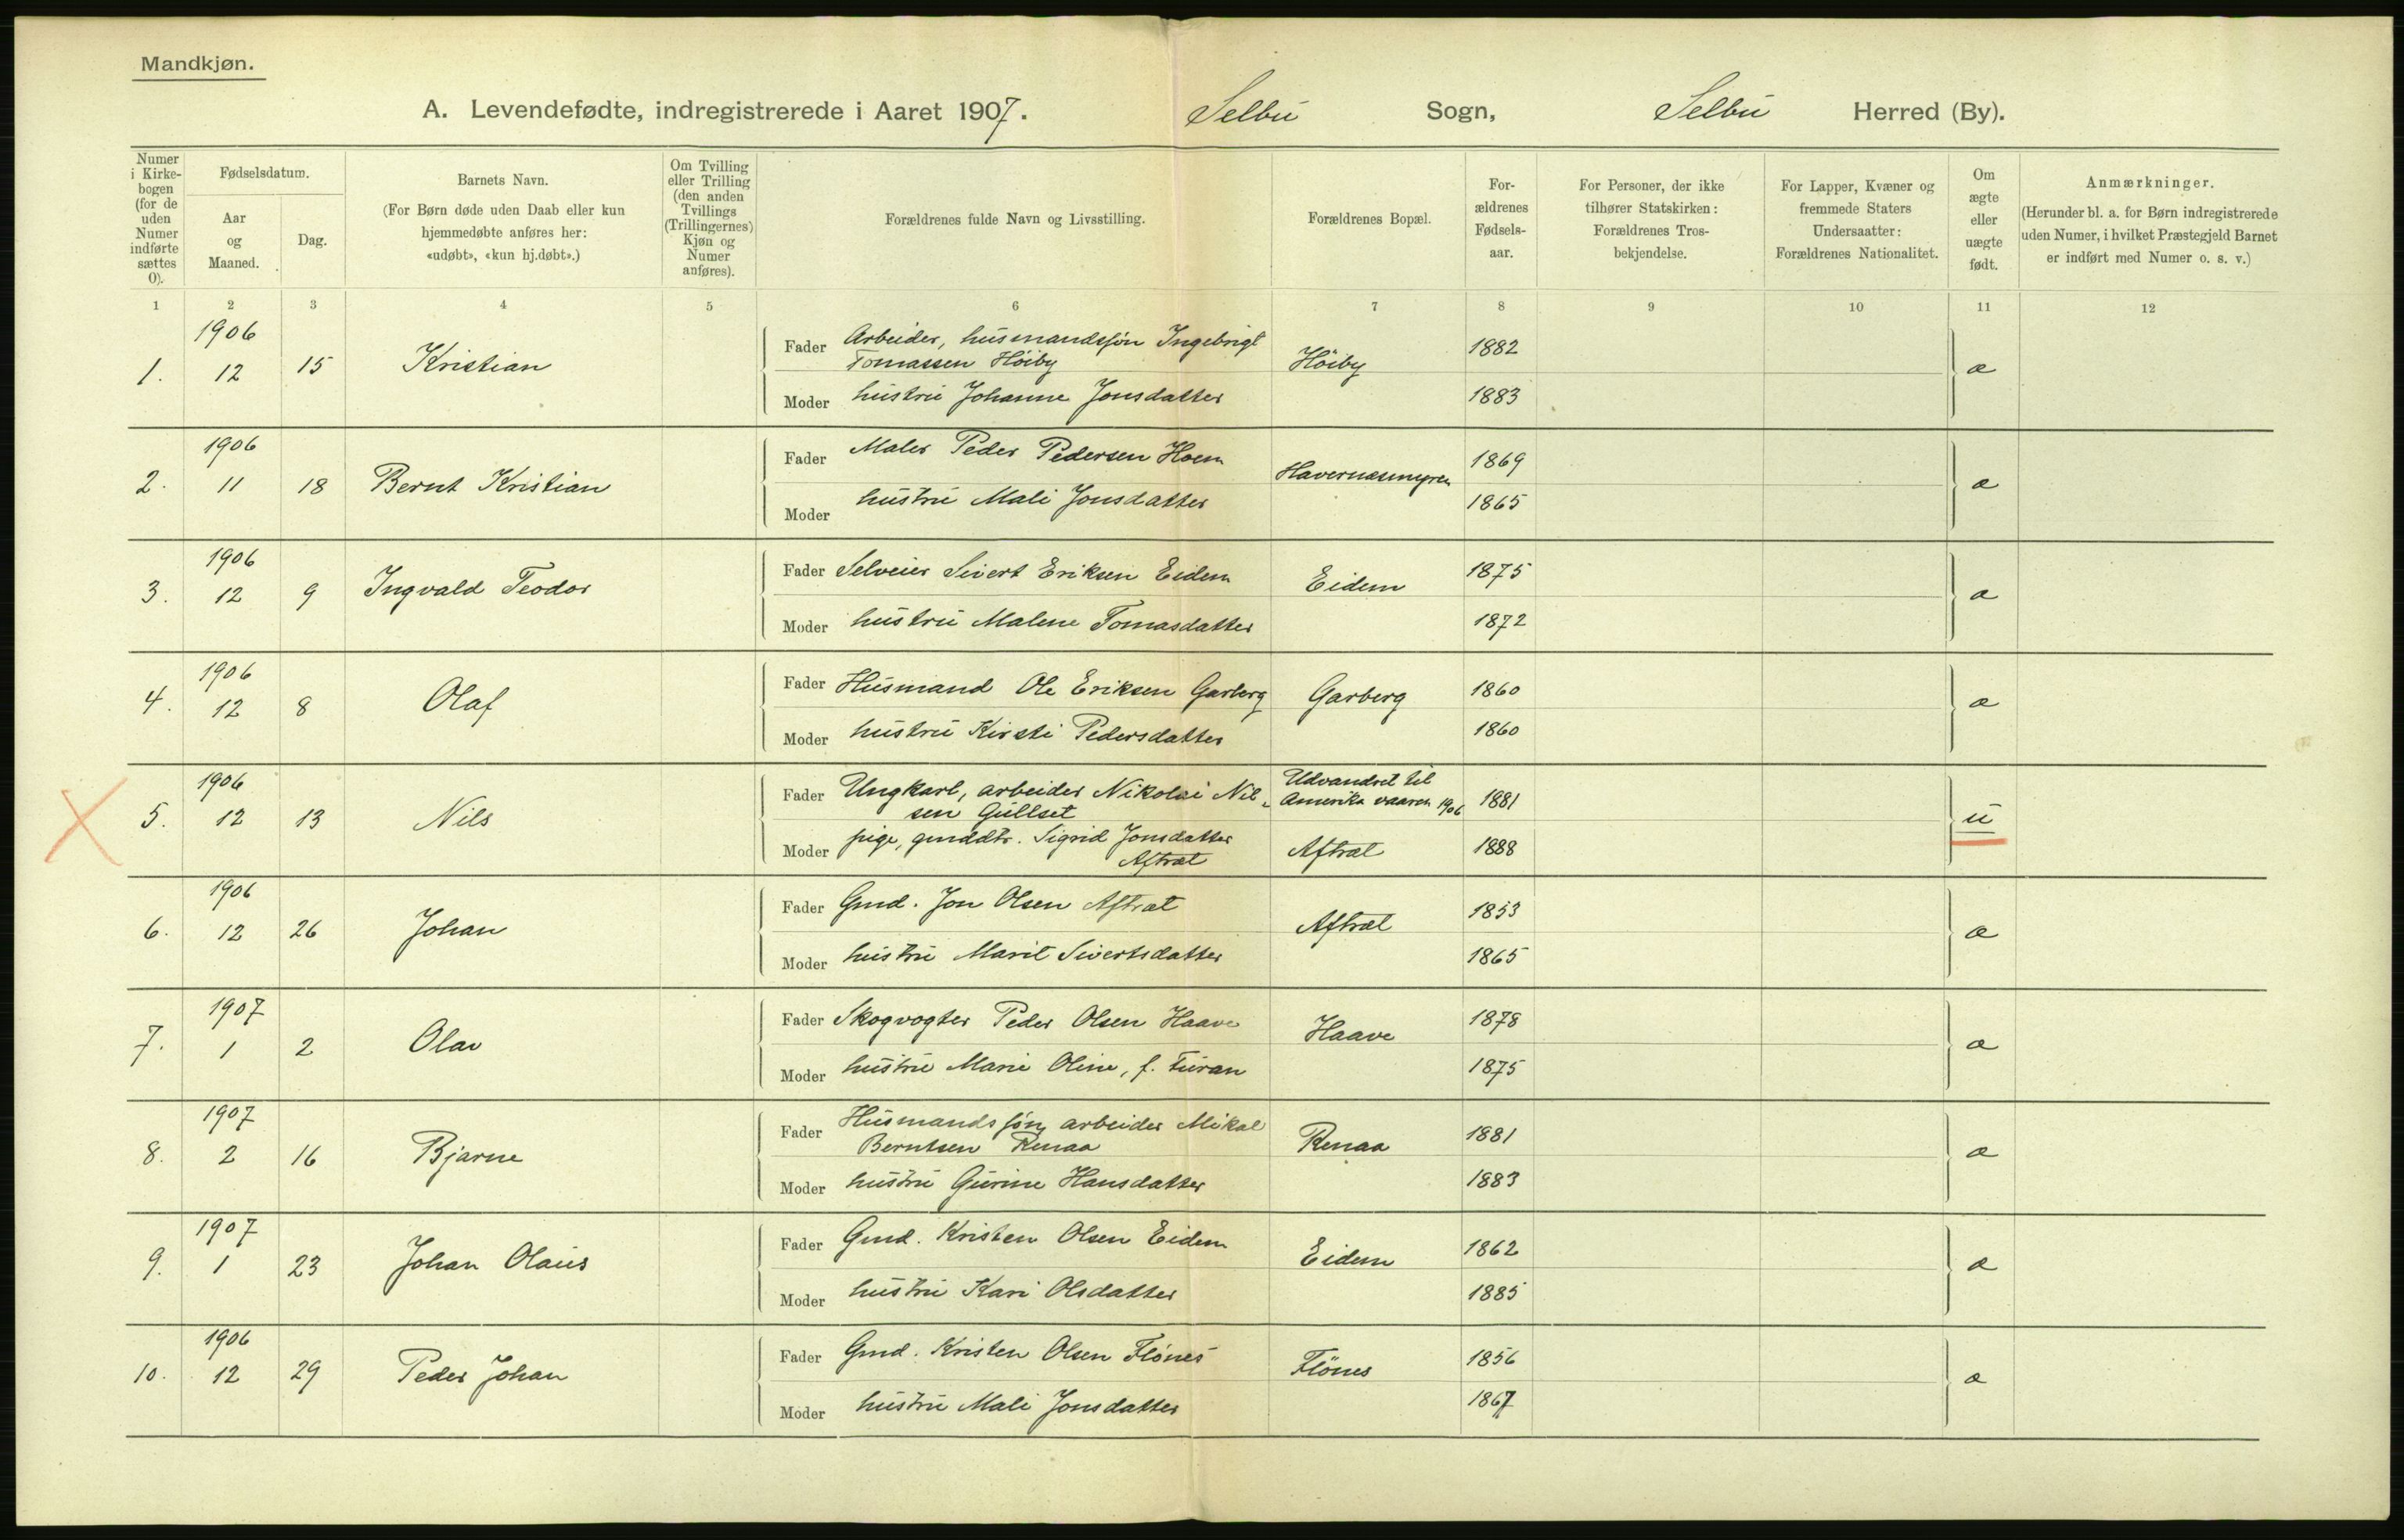 Mandkjøn.
A. Levendefødte, indregistrerede i Aaret 1907. Selbu Sogn, Selbu Herred (By).
Numer i Kirkebogen (for de uden Numer indførte sættes 0).
Fødselsdatum.
Aar og Maaned.
Dag.
Barnets Navn.
(For Børn døde uden Daab eller kun
hjemmedøbte anføres her:
«udøbt», «kun hj.døbt».)
Om Tvilling
eller Trilling
(den anden
Tvillings
(Trillingernes)
Kjøn og
Numer
anføres).
Forældrenes fulde Navn og Livsstilling.
Forældrenes Bopæl.
For-
ældrenes
Fødsels-
aar.
For Personer, der ikke
tilhører Statskirken:
Forældrenes Tros-
bekjendelse.
For Lapper, Kvæner og
fremmede Staters
Undersaatter:
Forældrenes Nationalitet.
Om
ægte
eller
uægte
født.
Anmærkninger.
(Herunder bl. a. for Børn indregistrerede
uden Numer, i hvilket Præstegjeld Barnet
er indført med Numer o. s. v.)
1 2 3 4 5 6 7 8 9 10 11 12
1. 1906 12 15 Kristian
Fader Arbeider, husmandssøn Ingebrigt
Tomassen Höiby Höiby 1882 æ
Moder hustru Johanne Jonsdatter 1883
2. 1906 11 18 Bernt Kristian
Fader Maler Peder Pedersen Hoem Havernæsmyren 1869 æ
Moder hustru Mali Jonsdatter 1865
3. 1906 12 9 Ingvald Teodor
Fader Selveier Sivert Eriksen Eidem Eidem 1875 æ
Moder hustru Malene Tomasdatter 1872
4. 1906 12 8 Olaf
Fader Husmand Ole Eriksen Garberg Garberg 1860 æ
Moder hustru Kirsti Pedersdatter 1860
5. 1906 12 13 Nils
Fader Ungkarl, arbeider Nikolai Nil-
sen Gullset Udvandret til
Amerika vaaren 1906 1881 u
Moder pige, gmddtr. Sigrid Jonsdatter
Aftret Aftret 1888
6. 1906 12 26 Johan
Fader Gmd. Jon Olsen Aftret Aftret 1853 æ
Moder hustru Marit Sivertsdatter 1865
7. 1907 1 2 Olav
Fader Skogvogter Peder Olsen Haave Haave 1878 æ
Moder hustru Marie Oline, f. Turan 1875
8. 1907 2 16 Bjarne
Fader Husmandssøn, arbeider Mikal
Berntsen Renaa Renaa 1881 æ
Moder hustru Gurine Hansdatter 1883
9. 1907 1 23 Johan Olaus
Fader Gmd. Kristen Olsen Eidem Eidem 1862 æ
Moder hustru Kari Olsdatter 1885
10. 1906 12 29 Peder Johan
Fader Gmd. Kristen Olsen Flönes Flönes 1856 æ
Moder hustru Mali Jonsdatter 1867